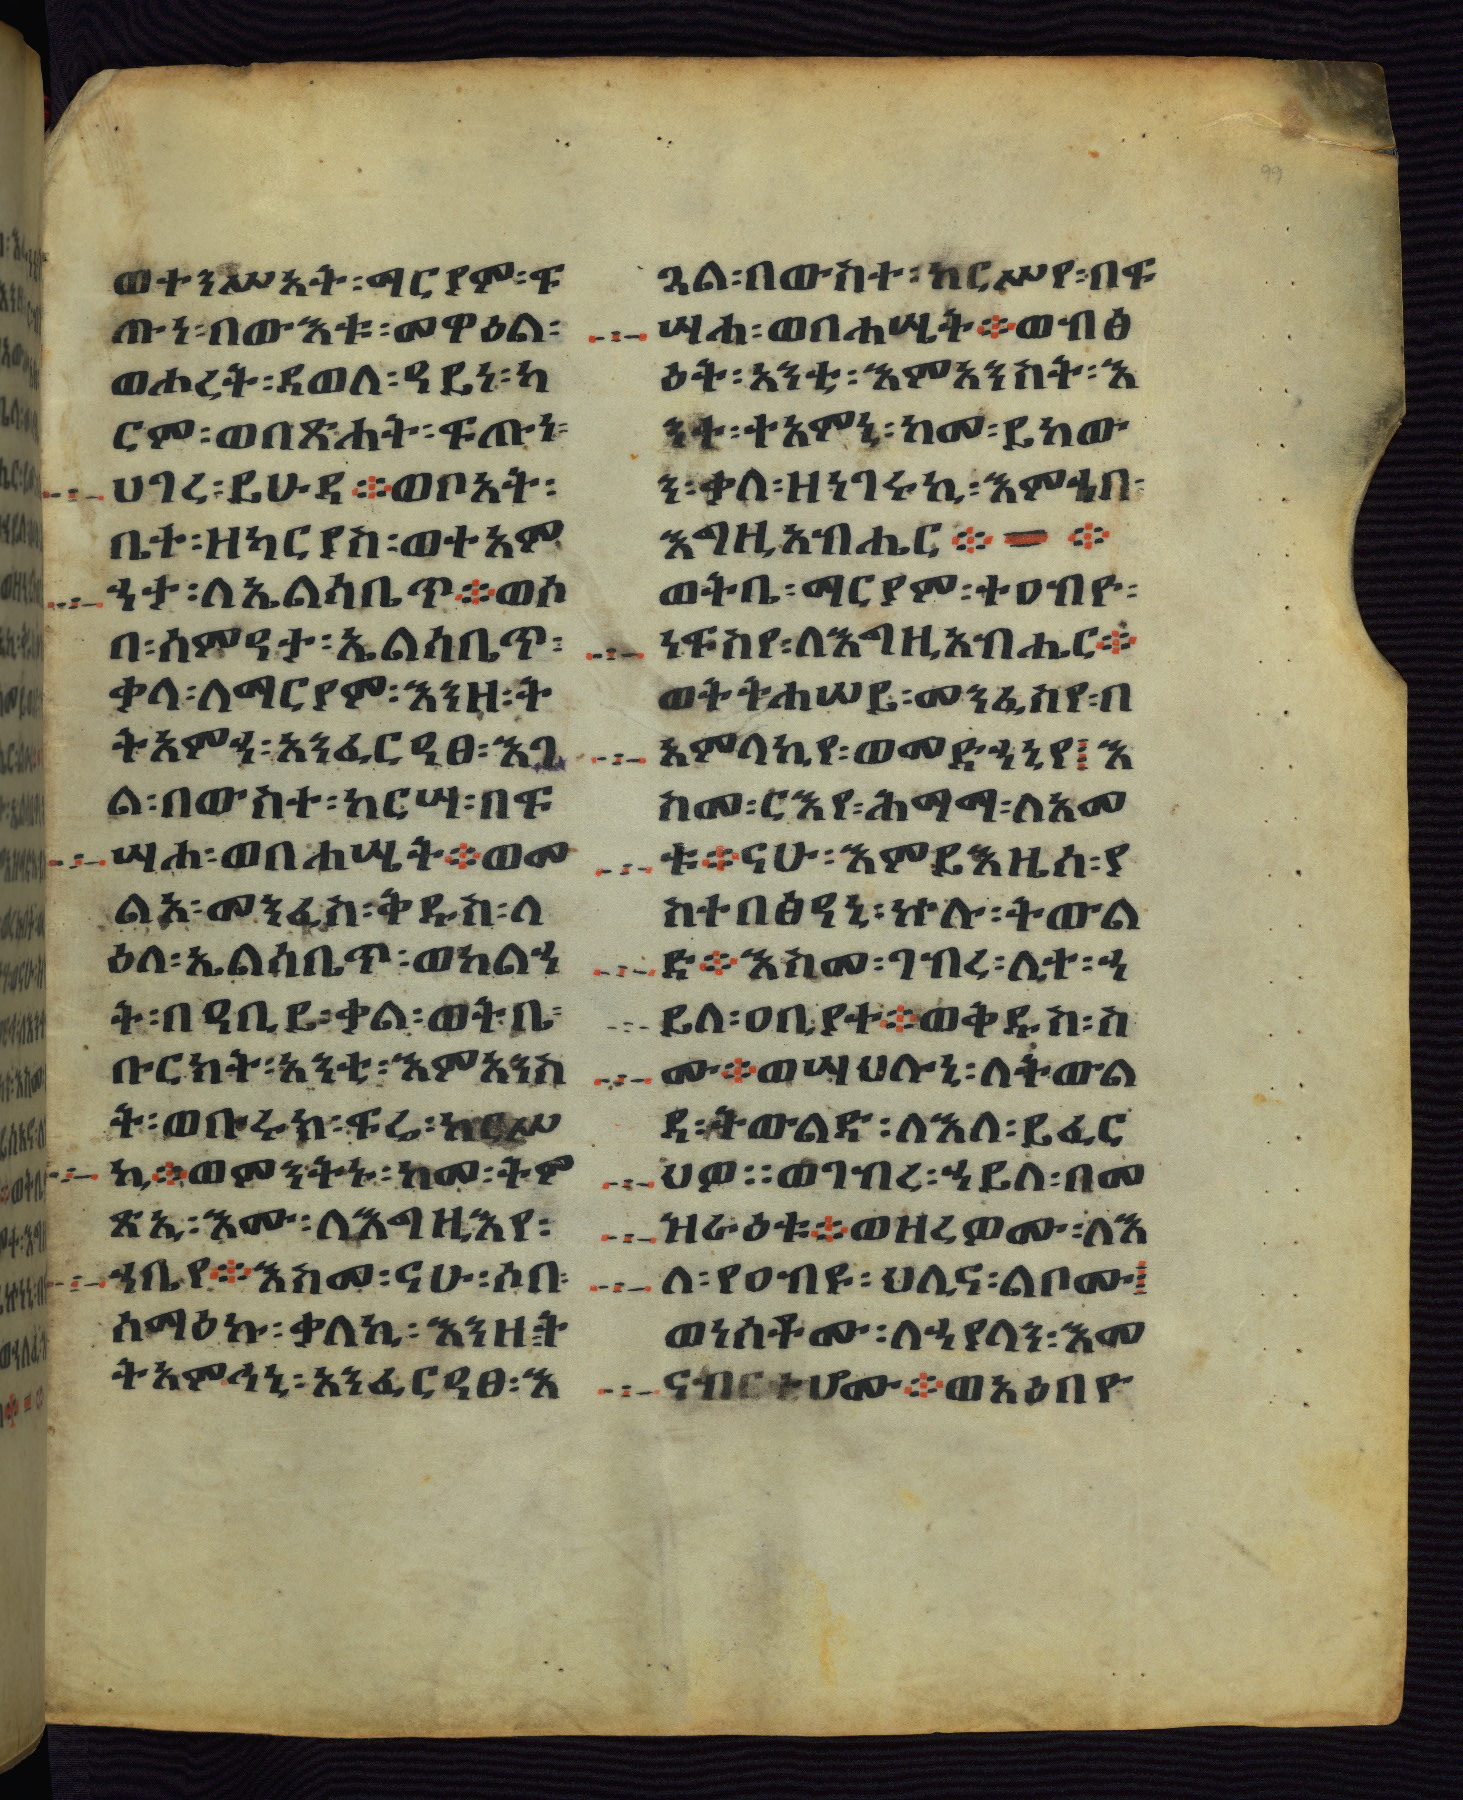 ወተንሥአት፡ማርያም፡ፍ
ጡነ፡በውእቱ፡መዋዕል፡
ወሖረት፡ደወለ፡ዳይነ፡ካ
ርም፡ወበጽሐት፡ፍጡነ፡
ሀገረ፡ይሁዳ፨ወቦአት፡
ቤተ፡ዘካርያስ፡ወተአም
ኀታ፡ለኤልሳቤጥ፨ወሶ
በ፡ሰምዓታ፡ኤልሳቤጥ፡
ቃላ፡ለማርያም፡እንዘ፡ት
ትአምኀ፡አንፈርዓፀ፡እጓ
ል፡በውስተ፡ከርሣ፡በፍ
ሣሐ፡ወበሐሤት፨ወመ
ልአ፡መንፈስ፡ቅዱስ፡ላ
ዕለ፡ኤልሳቤጥ፡ወከልሐ
ት፡በዓቢይ፡ቃል፡ወትቤ፡
ቡርክት፡አንቲ፡እምአንስ
ት፡ወቡሩክ፡ፍሬ፡ከርሥ
ኪ፨ወምንትኑ፡ከመ፡ትም
ጽኢ፡እሙ፡ለእግዚእየ፡
ኀቤየ፨እስመ፡ናሁ፡ሶበ፡
ሰማዕኩ፡ቃለኪ፡እንዘ፡ት
ትአምኅኒ፡አንፈርዓፀ፡እ
ጓል፡በውስተ፡ከርሥየ፡በፍ
ሣሐ፡ወበሐሤት፨ወብፅ
ዕት፡አንቲ፡እምአንስት፡እ
ንተ፡ተአምኒ፡ከመ፡ይከው
ን፡ቃለ፡ዘነገሩኪ፡እምኀበ፡
እግዚአብሔር፨፨
ወትቤ፡ማርያም፡ተዐብዮ፡
ነፍስየ፡ለእግዚአብሔር፨
ወትትሐሠይ፡መንፈስየ፡በ
አምላኪየ፡ወመድኀኒየ፤እ
ስመ፡ርእየ፡ሕማማ፡ለአመ
ቱ፨ናሁ፡እምይእዜሰ፡ያ
ስተበፅዓኒ፡ኵሉ፡ትውል
ድ፨እስመ፡ገብረ፡ሊተ፡ኀ
ይለ፡ዐቢያተ፨ወቅዱስ፡ስ
ሙ፨ወሣህሉኒ፡ለትውል
ደ፡ትውልድ፡ለእለ፡ይፈር
ህዎ፡፡ወገብረ፡ኀይለ፡በመ
ዝራዕቱ፨ወዘረዎሙ፡ለእ
ለ፡የዐብዩ፡ህሊና፡ልቦሙ፤
ወነስቶሙ፡ለኀያላን፡እመ
ናብርቲሆሙ፨ወአዕበዮ